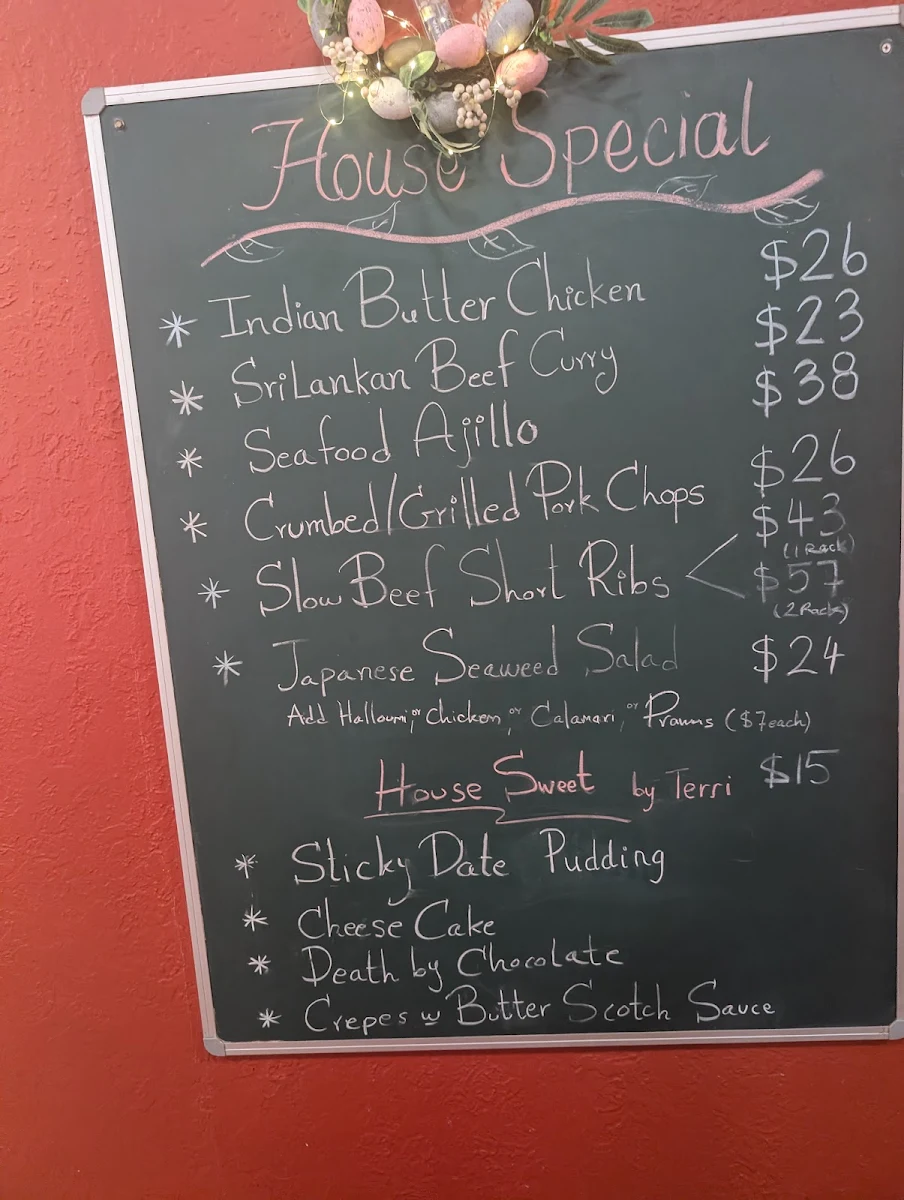 House Special
* Indian Butter Chicken $26
* Sri Lankan Beef Curry $23
* Seafood Ajillo $38
* Crumbed/Grilled Pork Chops $26
* Slow Beef Short Ribs < $43
(1 Rack)
$57
(2 Racks)
* Japanese Seaweed Salad $24
Add Halloumi, or Chicken, or Calamari, or Prawns ($7each)
House Sweet by Terri $15
* Sticky Date Pudding
* Cheese Cake
* Death by Chocolate
* Crepes w Butter Scotch Sauce